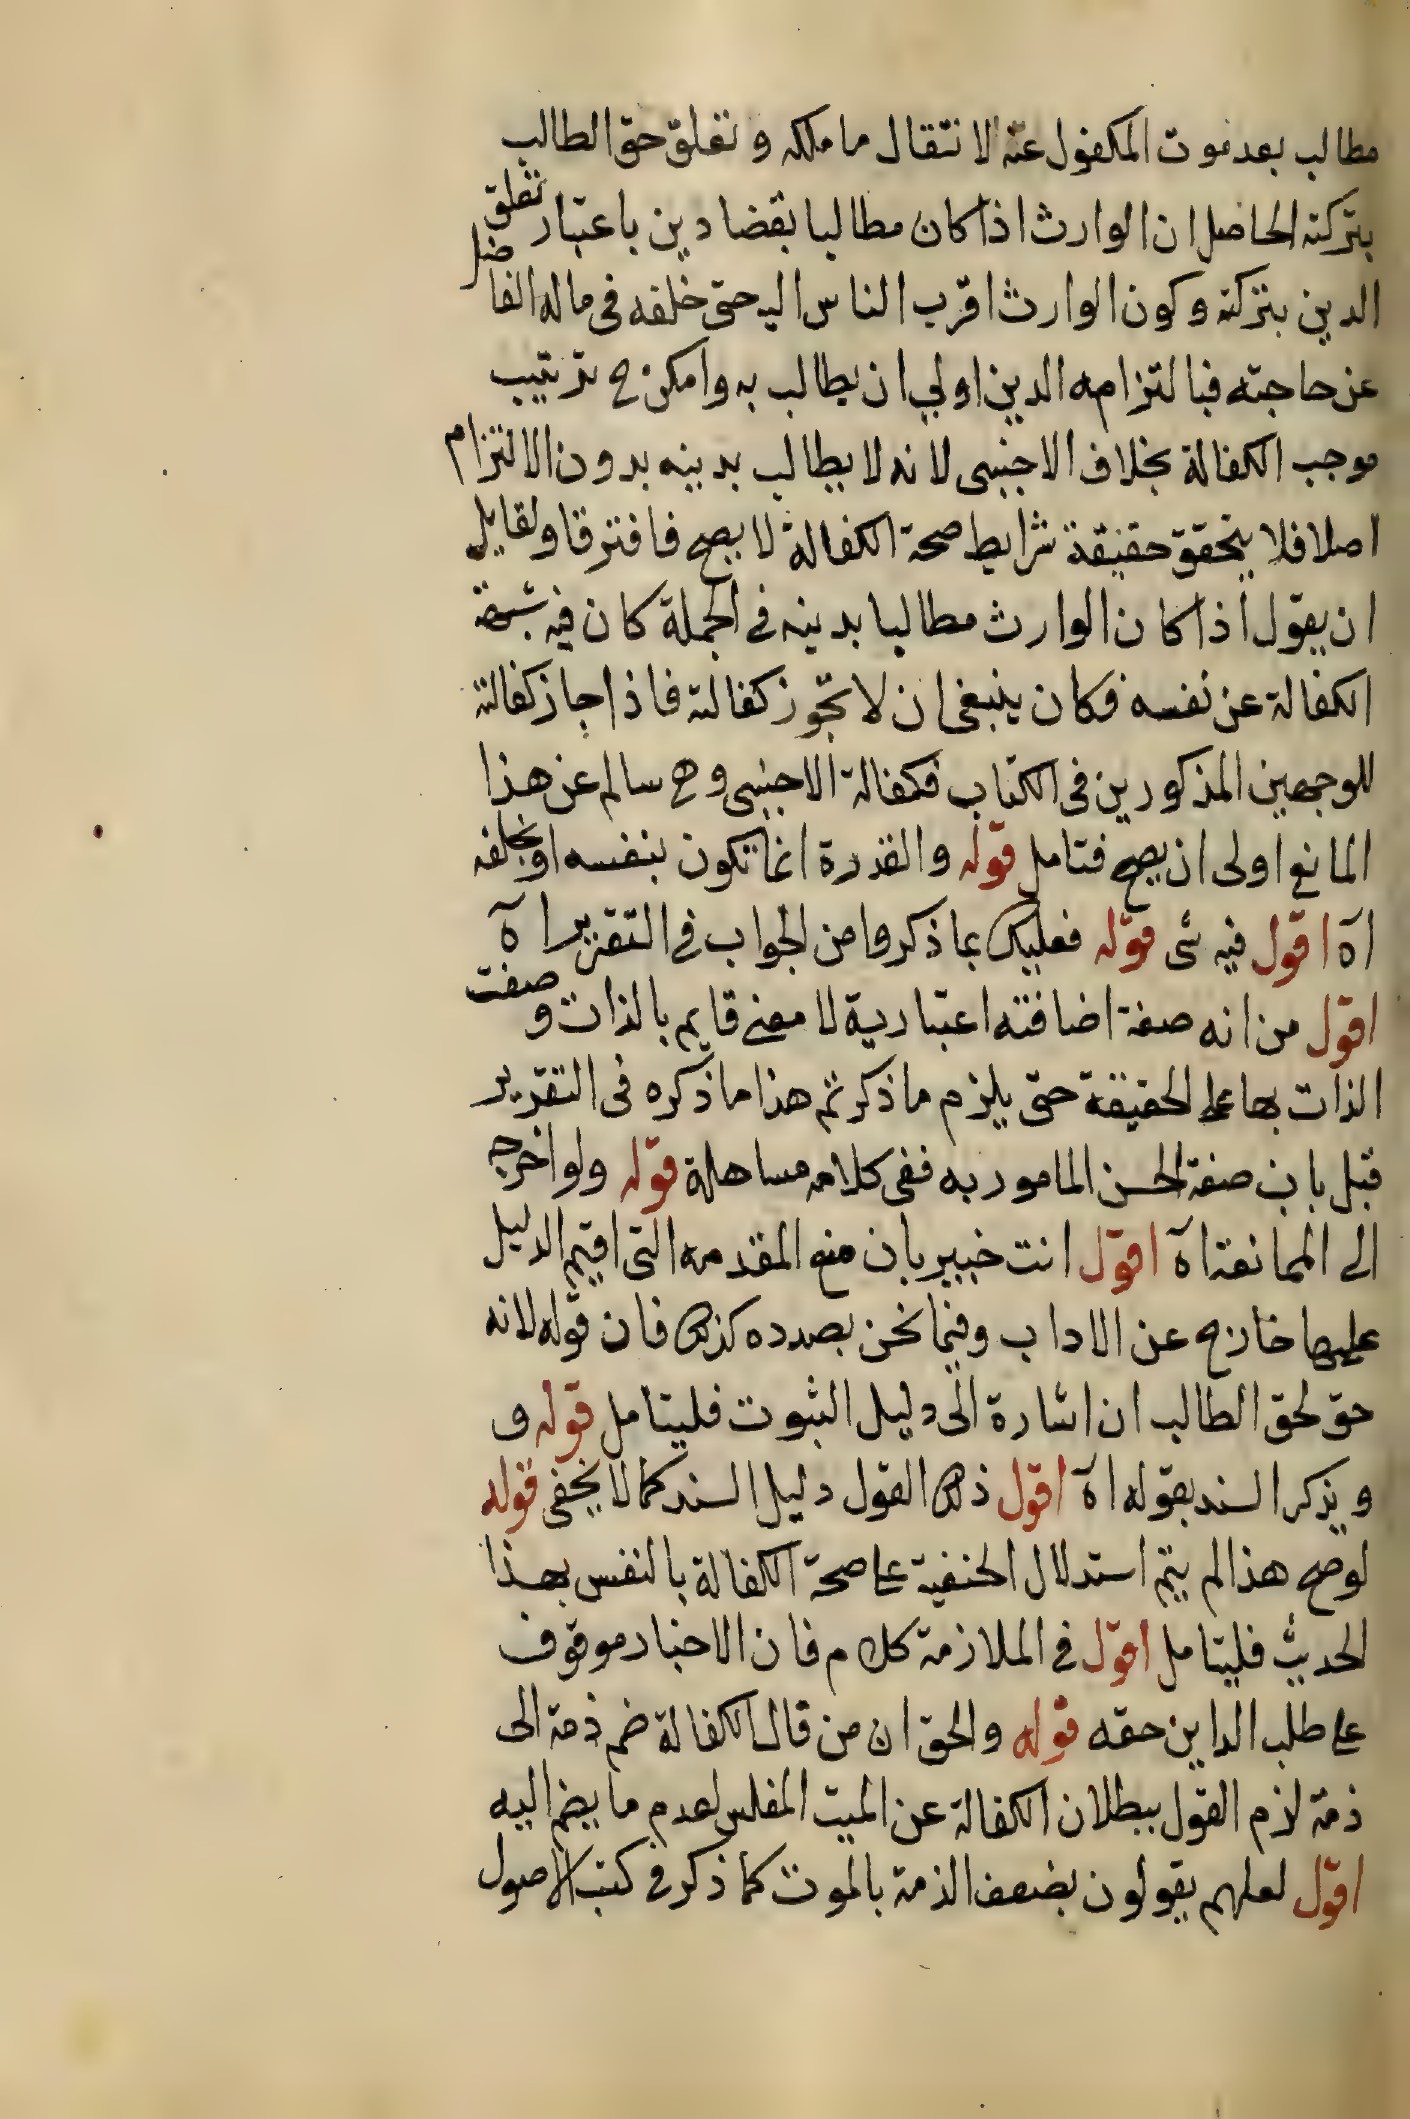 مطالب بعد موت المكفول عنه لانتقال ما ملكه و تعلق حق الطالب
بتركته الحاصل ان الوارث اذا كان مطالبا بقضا دين باعتبار تعلق
الدين بتركته وكون الوارث اقرب الناس اليه حتى خلفه فى ماله الفاضل
عن حاجته فبالتزامه الدين اولي ان يطالب به وامكن ح ترتيب
موجب الكفالة بخلاف الاجنبى لانه لا يطالب بدينه بدون الالتزام
اصلا فلا يتحقق حقيقة شرايط صحة الكفالة لا يصح فافترقا ولقايل
ان يقول اذا كان الوارث مطالبا بدينه في الجملة كان فيه شبهة
الكفالة عن نفسه فكان ينبغى ان لا تجوز كفالته فاذا جاز كفالته
للوجهين المذكورين فى الكتاب فكفالة الاجنبى وح سالم عن هذا
المانع اولى ان يصح فتامل قوله والقدرة انما تكون بنفسه او بخلفه
اه اقول فيه شى قوله فعليك بما ذكروا من الجواب في التقرير اه
اقول من انه صفة اضافته اعتبارية لا معنى قايم بالذات و صفت
الذات بها على الحقيقة حتى يلزم ما ذكر ثم هذا ما ذكره فى التقرير
قبل باب صفة الحسن المامور به ففى كلامه مساهلة قوله ولو اخرجه
الى الممانعة اه اقول انت خبير بان منع المقدمه التى اقيم الدليل
عليها خارج عن الاداب وفيما نحن بصدده كذلك فان قوله لانه
حق لحق الطالب ان اشارة الى دليل الثبوت فليتامل قوله و
و يذكر السند بقوله اه اقول ذلك القول دليل السند كما لا يخفى قوله
لوصح هذا لم يتم استدلال الحنفية على صحة الكفالة بالنفس بهذا
الحديث فليتامل اقول في الملازمة كلام فان الاخبار موقوف
على طلب الداين حقه قوله والحق ان من قال الكفالة ضم ذمة الى
ذمة لزم القول ببطلان الكفالة عن الميت المفلس لعدم ما يضم اليه
اقول لعلهم يقولون بضعف الذمة بالموت كما ذكر في كتب الاصول